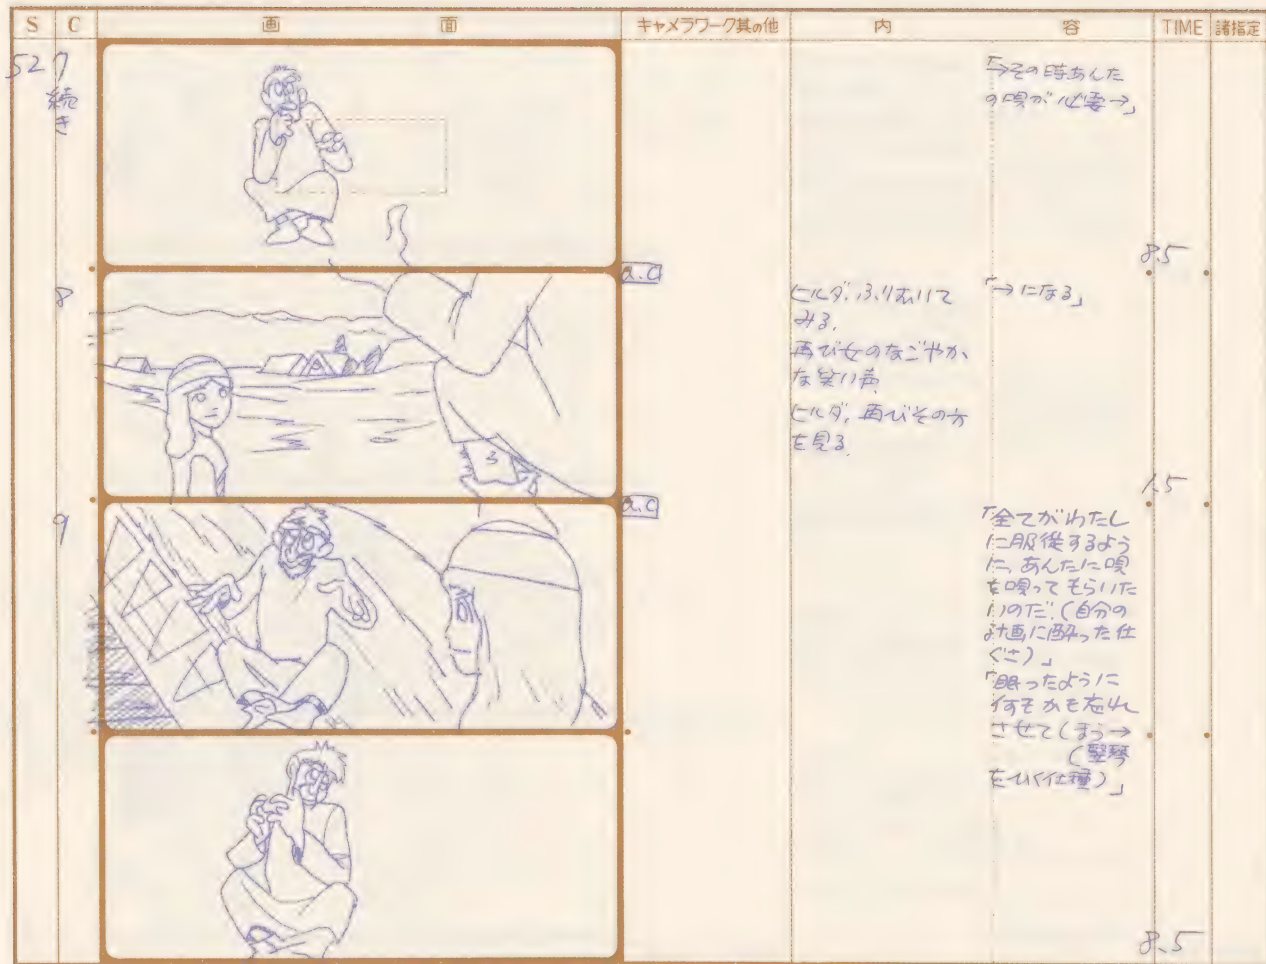 S C 画面 キャメラワーク其の他 内容 TIME 諸指定
52 7
続
き
「→その時あんた
の唄が必要→」
8.5
8
a.c
ヒルダ、ふりむいて
みる。
再び女のなごやか
な笑い声。
ヒルダ、再びその方
を見る。
「→になる」
1.5
9
a.c
「全てがわたし
に服従するよう
に、あんたに唄
を唄ってもらいた
いのだ。(自分の
計画に酔った仕
ぐさ)」
「眠ったように
何もかも忘れ
させてしまう→
(竪琴
をひく仕種)」
8.5